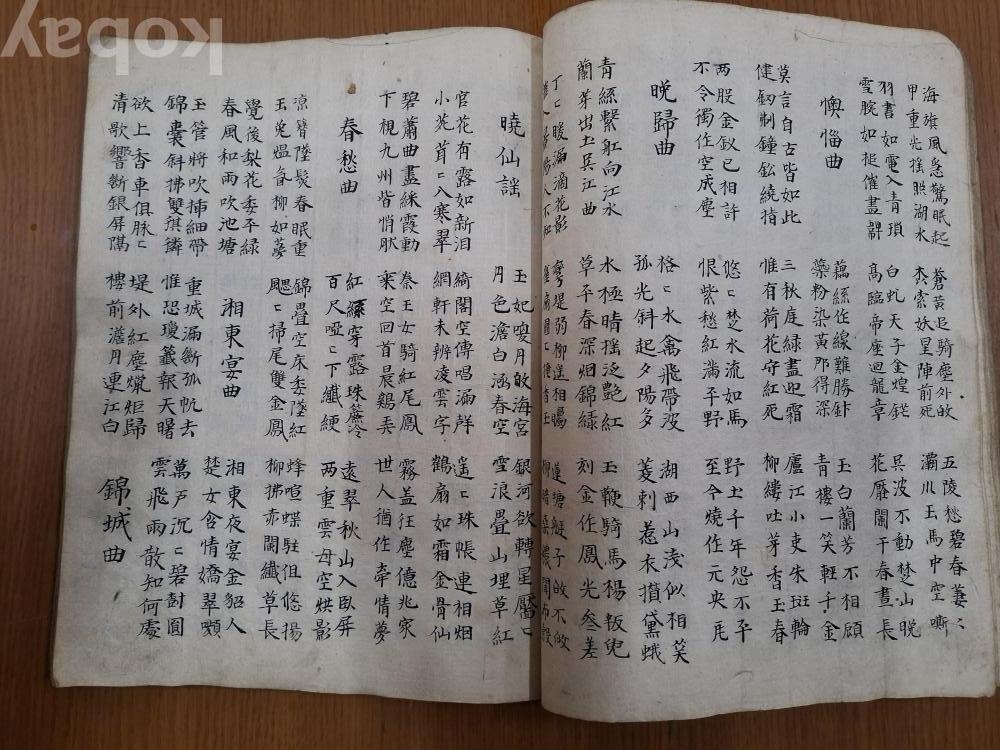 海旗風急驚眠起
甲重光搖照湖水
蒼黃追騎塵外故
森索妖星陣前死
五陵愁碧春萋〻
灞川玉馬中空嘶
羽書如電入青瑣
雪腕如搥催畫鞞
白虬天子金煌鋩
高臨帝座迴龍章
吳波不動楚山晚
花壓闌干春晝長
懊惱曲
藕絲作線難勝針
蘂粉染黃那得深
玉白蘭芳不相顧
青樓一笑輕千金
莫言自古皆如此
健劒刜鐘鉛繞指
三秋庭綠盡迎霜
惟有荷花守紅死
廬江小吏朱斑輪
柳縷吐芽香玉春
两股金釵已相許
不令獨作空成塵
悠〻楚水流如馬
恨紫愁紅滿子野
野土千年怨不平
至今燒作元央瓦
晚歸曲
格〻水禽飛帶波
孤光斜起夕陽多
湖西山淺似相笑
菱刺惹衣攢黛蛾
青絲繫舡向江水
蘭芽出土吳江曲
水極晴搖泛艶紅
草平春深烟綿綠
玉鞭騎馬楊叛兒
刻金作鳳光參差
丁〻暖漏滴花影
人不知
彎堤弱柳遥相矚
蓮塘艇子故不故
曉仙謠
玉妃喚月故海宮
月色澹白涵春空
銀河欲轉星靨〻
雪浪疊山埋草紅
宫花有露如新泪
小苑茸〻入寒翠
綺閣空傳唱漏聲
網軒未辨凌雲字
遥〻珠帳連相烟
鶴扇如霜金骨仙
碧簫曲盡綵霞動
下視九州皆悄肰
秦王女騎紅尾鳳
乘空回首晨鷄弄
霧盖狂塵億兆家
世人猶作牽情夢
春愁曲
紅絲穿露珠簾冷
百尺啞〻下纖綆
遠翠秋山入臥屏
两重雲母空烘影
凉簪墜髮春眠重
玉兔熅香柳如夢
錦疊空床委墜紅
颸〻掃尾雙金鳳
蜂喧蝶駐俱悠揚
柳拂赤闌纖草長
覺後梨花委平綠
春風和雨吹池塘
湘東宴曲
湘東夜宴金貂人
楚女含情嬌翠嚬
玉管將吹揷細帶
錦囊斜拂雙麒麟
重城漏斷孤帆去
惟恐瓊籖報天曙
萬戶沉〻碧樹圓
雲飛雨散知何處
欲上香車俱脉〻
清歌響斷銀屏隔
堤外紅塵蠟炬歸
樓前澹月連江白
錦城曲
kobay